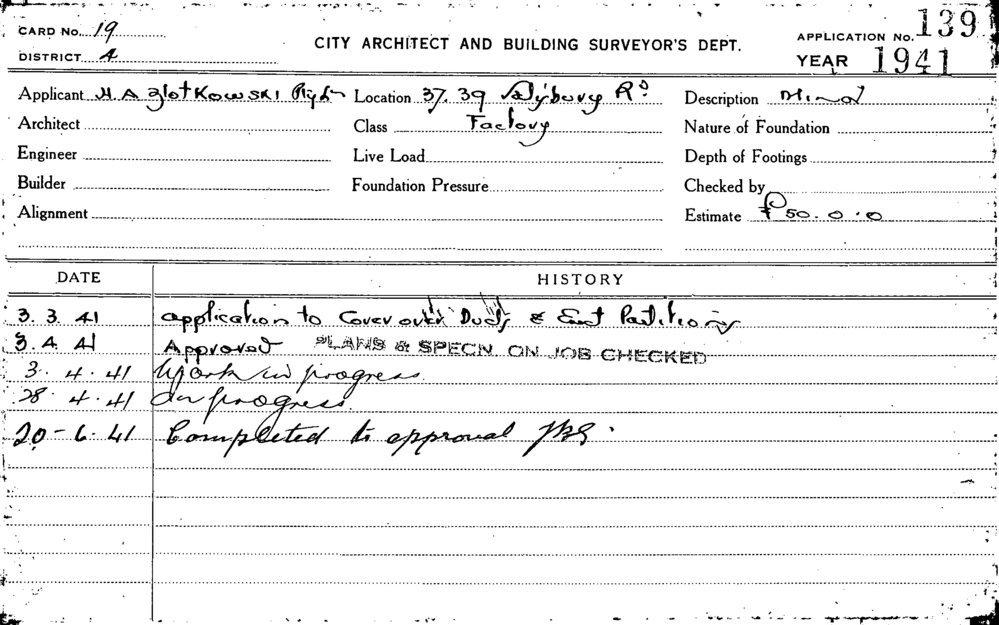 CARD No. 19
DISTRICT 4
CITY ARCHITECT AND BUILDING SURVEYOR'S DEPT.
APPLICATION No. 139
YEAR 1941
Applicant H. A. Zlotkowski Location 37. 39 Rd Description Minor
Architect Class Factory Nature of Foundation
Engineer Live Load Depth of Footings
Builder Foundation Pressure Checked by
Alignment Estimate £50.0.0
DATE HISTORY
3. 3. 41 Application to Cover over Ducts & Erect Partitions
3. 4. 41 Approved PLANS & SPECN. ON JOB CHECKED
3. 4. 41 Work in progress
28. 4. 41 In progress.
20-6.41 Completed to approval